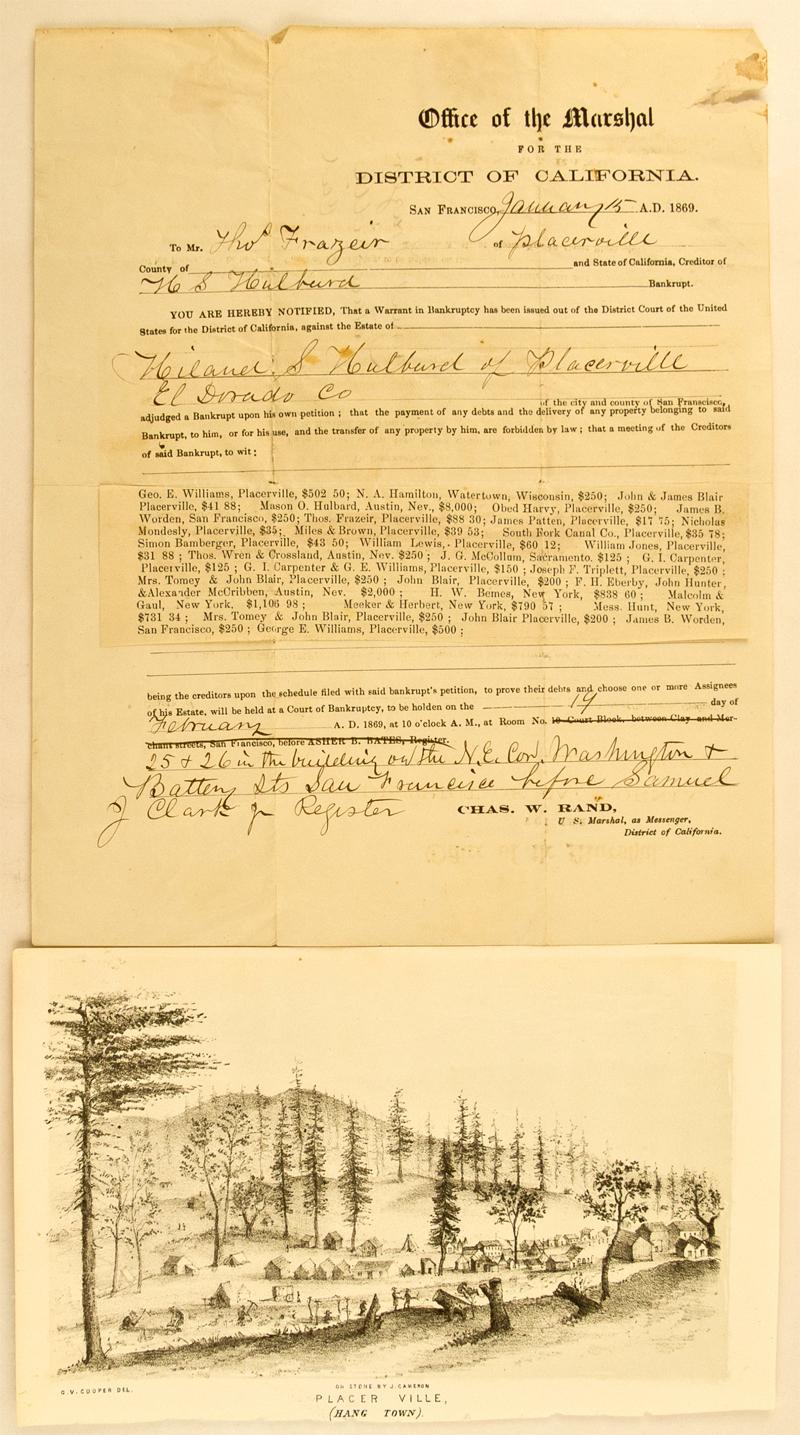 Office of the Marshal
FOR THE
DISTRICT OF CALIFORNIA.
SAN FRANCISCO, January 15 A.D. 1869.
To Mr. Thos Frazeir of Placerville
County of and State of California, Creditor of
H S Hulburd Bankrupt.
YOU ARE HEREBY NOTIFIED, That a Warrant in Bankruptcy has been issued out of the District Court of the United
States for the District of California, against the Estate of
Hiland. S Hulburd of Placerville
El Dorado Co
of the city and county of San Francisco,
adjudged a Bankrupt upon his own petition ; that the payment of any debts and the delivery of any property belonging to said
Bankrupt, to him, or for his use, and the transfer of any property by him, are forbidden by law ; that a meeting of the Creditors
of said Bankrupt, to wit :
Geo. E. Williams, Placerville, $502 50; N. A. Hamilton, Watertown, Wisconsin, $250; John & James Blair
Placerville, $41 88; Mason O. Hulbard, Austin, Nev., $8,000; Obed Harvy, Placerville, $250; James B.
Worden, San Francisco, $250; Thos. Frazeir, Placerville, $88 30; James Patten, Placerville, $17 75; Nicholas
Mondesly, Placerville, $35; Miles & Brown, Placerville, $39 53; South Fork Canal Co., Placerville, $35 78;
Simon Bamberger, Placerville, $43 50; William Lewis, Placerville, $60 12; William Jones, Placerville,
$31 88 ; Thos. Wren & Crossland, Austin, Nev. $250 ; J. G. McCollum, Sacramento. $125 ; G. I. Carpenter,
Placerville, $125 ; G. I. Carpenter & G. E. Williams, Placerville, $150 ; Joseph F. Triplett, Placerville, $250 ;
Mrs. Tomey & John Blair, Placerville, $250 ; John Blair, Placerville, $200 ; F. H. Eberby, John Hunter,
&Alexander McCribben, Austin, Nev. $2,000 ; H. W. Bemes, New York, $838 60 ; Malcolm &
Gaul, New York. $1,106 98 ; Meeker & Herbert, New York, $790 57 ; Mess. Hunt, New York,
$731 34 ; Mrs. Tomey & John Blair, Placerville, $250 ; John Blair Placerville, $200 ; James B. Worden,
San Francisco, $250 ; George E. Williams, Placerville, $500 ;
being the creditors upon the schedule filed with said bankrupt's petition, to prove their debts and choose one or more Assignees
of his Estate, will be held at a Court of Bankruptcy, to be holden on the 19 day of
February A. D. 1869, at 10 o'clock A. M., at Room No. 10 Court Block, between Clay and Mer-
chant streets, San Francisco, before ASHER B. BATES, Register.
25 & 26 in the building on the N.E. Cor. Washington &
Battery Sts San Francisco before Samuel
J Clark jr Register
CHAS. W. RAND,
U S. Marshal, as Messenger,
District of California.
G.V. COOPER DEL.
ON STONE BY J. CAMERON
PLACER VILLE,
(HANG TOWN).